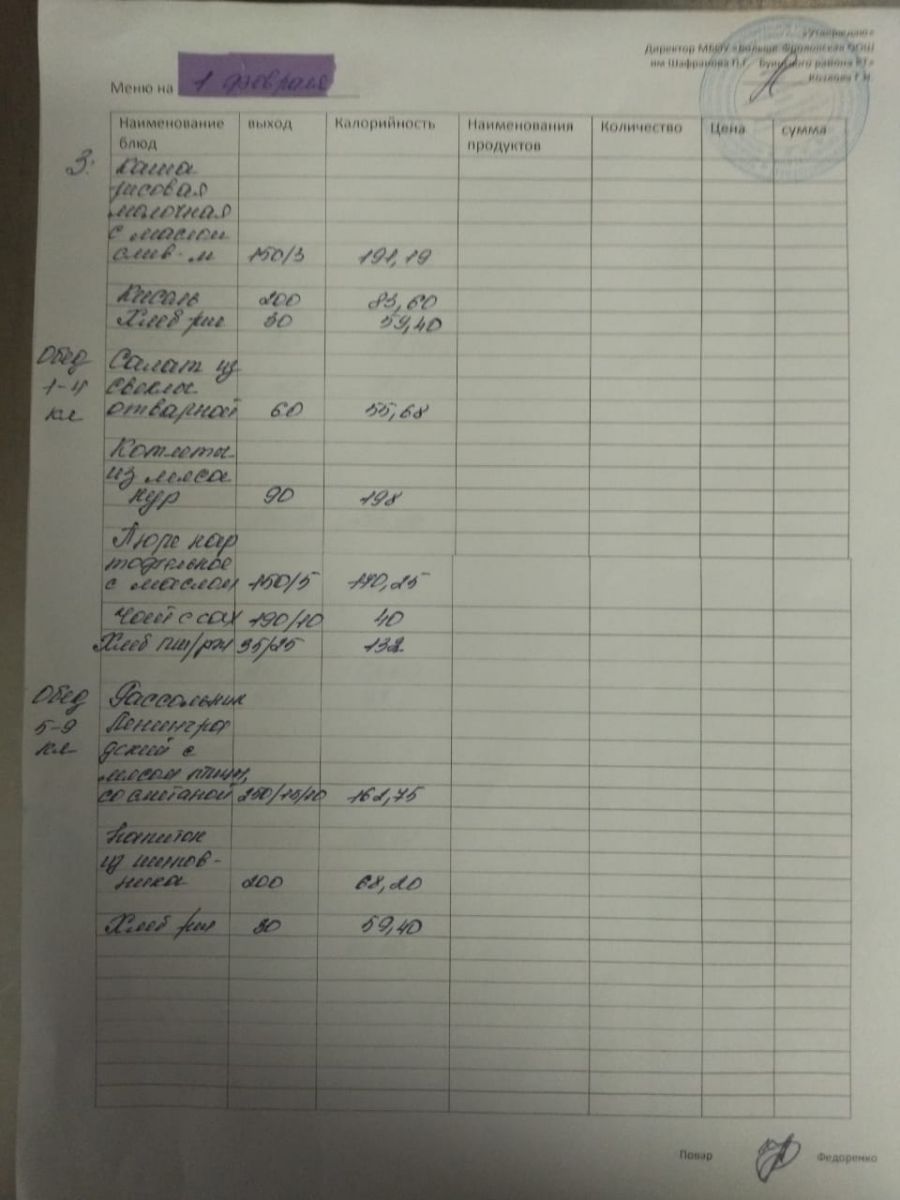 «Утверждаю»
Директор МБОУ «Больше-Фроловская ООШ
им Шафранова П.Г. Буинского района РТ»
Козлова Г.Н.
Меню на 1 февраля
Наименование блюд выход Калорийность Наименования продуктов Количество Цена сумма
З. Каша
рисовая
молочная
с маслом
слив. м 150/3 191,19
Кисель 200 83,60
Хлеб рж 30 59,40
Обед Салат из
1-4 свеклы
кл отварной 60 55,68
Котлеты
из мяса
кур 90 198
Пюре кар
тофельное
с маслом 150/5 170,25
Чай с сах 190/10 40
Хлеб пш/рж 35/25 132
Обед Рассольник
5-9 Ленингра
кл дский с
мясом птицы,
со сметаной 250/15/10 162,75
Напиток
из шипов-
ника 200 68,20
Хлеб рж 30 59,40
Повар Федоренко